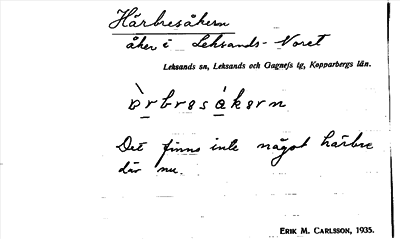 Härbresåkern
åker i Leksands-Noret
Leksands sn, Leksands och Gagnefs tg, Kopparbergs län.
ὰrbresåkern
Det finns inte något härbre
där nu.
ERIK M. CARLSSON, 1935.